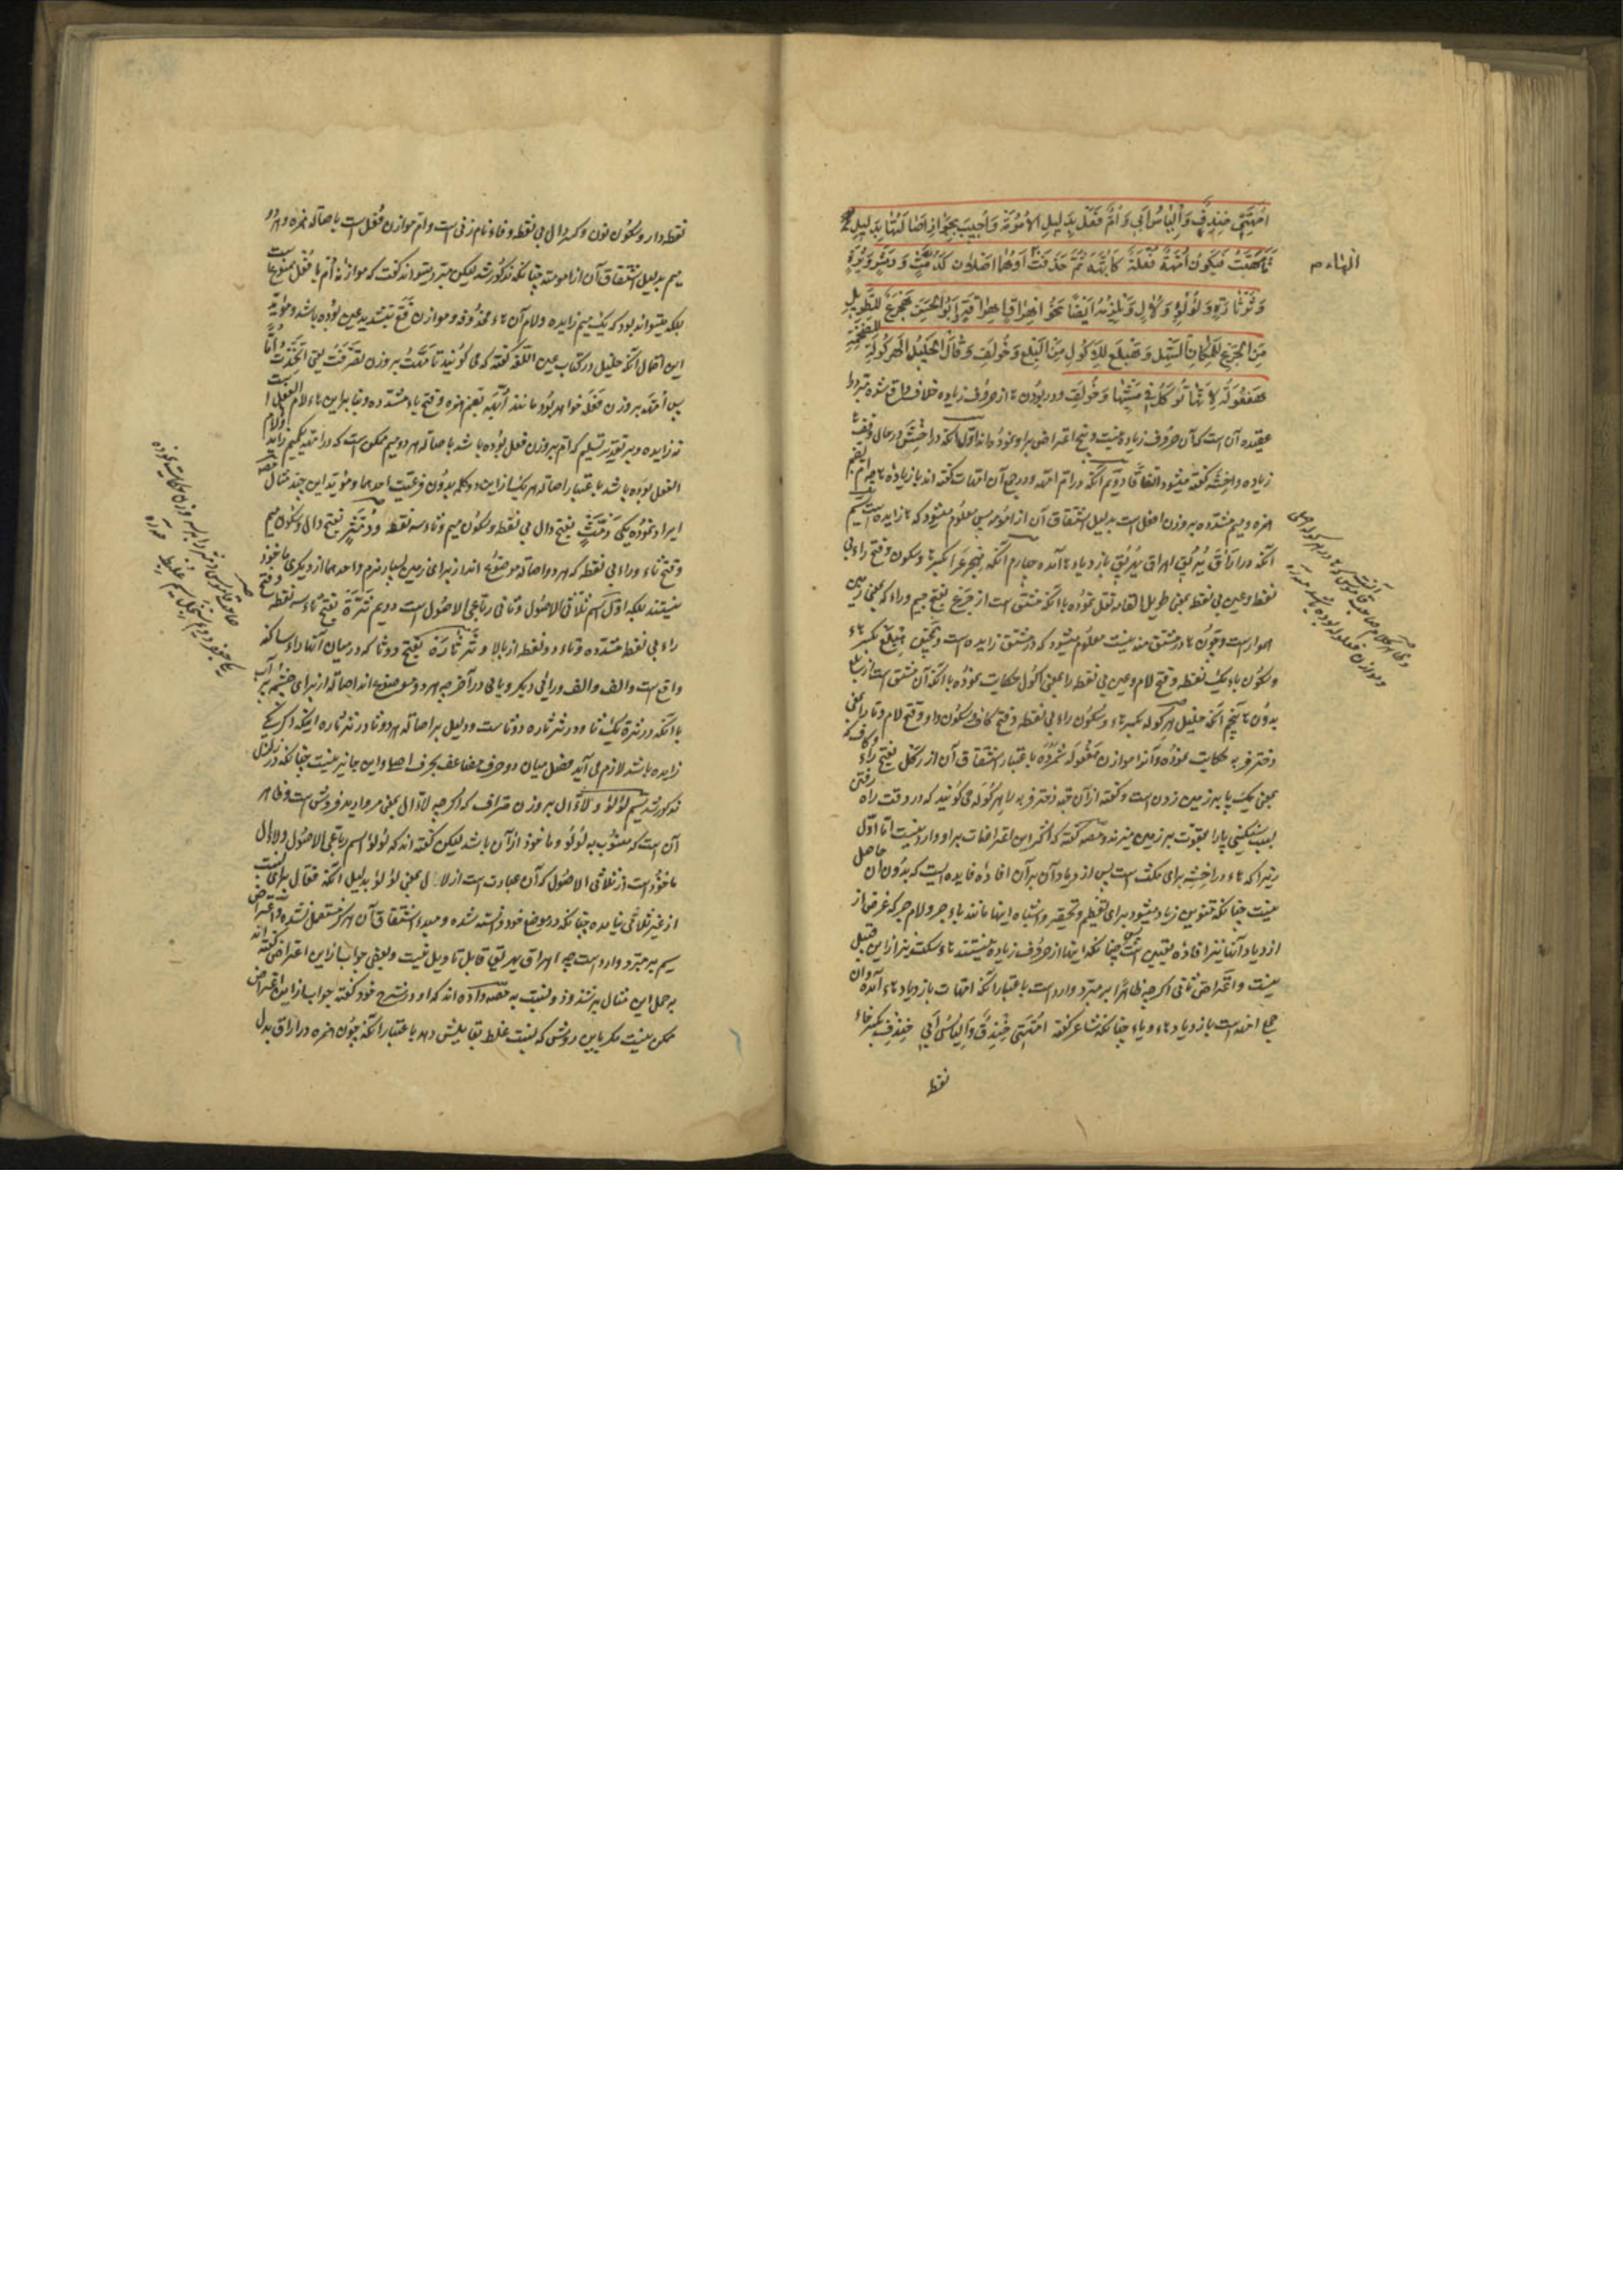 امهتی خندف والیاس ابی وام فعل بدلیل الامومة واجیب بجواز اصالتها بدلیل
تامهت فیکون امهة فعلة کابهة ثم حذفت او هما اصلان کدمث و دمثر و ثرة
و ثرثارة ولؤلؤ ولآل ویلزمه ایضا نحو اهراق اهراقة ابو الحسن هجرع للطویل
من الجرع للمکان السهل وهبلع للاکول من البلع وخولف وقال الخلیل الهرکولة للضخمة
هفعولة لانها ترکل فی مشیها وخولف ودر بودن ها از حروف زیاده خلاف واقع شده مبرد را
عقیده آن است که آن حروف زیاده نیست و پنج اعتراض بر او نموده‌اند اول آنکه در اخشه در حال وقف
زیاده و اخشه گفته میشود اتفاقا دویم آنکه در ام امهه و در جمع آن امهات گفته اند بازیاده ها چه ام بضم
همزه و میم مشدده بر وزن فعل است بدلیل اشتقاق آن از امومه پس معلوم میشود که ها زایده است سیم
آنکه در اراق یریق اهراق یهریق بازدیاد ها آمده چهارم آنکه هجرع را بکسر ها و سکون و فتح راء بی
نقطه و عین بی نقطه بمعنی طویل القامه نقل نموده با آنکه مشتق است از جرع بفتح جیم و راء که بمعنی زمین
هموار است و چون ها در مشتق منه نیست معلوم میشود که در مشتق زایده است و همچنین هبلع بکسر هاء
و سکون باء یک نقطه و فتح لام و عین بی نقطه را بمعنی اکول حکایت نموده با آنکه آن مشتق است از بلع
بدون ها پنجم آنکه خلیل هرکوله بکسر هاء و سکون راء بی نقطه و فتح کاف و سکون واو و فتح لام و تا را بمعنی
دختر فربه حکایت نموده و آنرا موازن هفعوله شمرده باعتبار اشتقاق آن از رکل بفتح راء و کاف که
بمعنی یک پا بر زمین زدن است و گفته از آن جهة دختر فربه را هرکوله می گویند که در وقت راه رفتن
بسبب سنگینی پا را بقوت بر زمین میزند و مصه گفته که اکثر این اعتراضات بر او وارد نیست اما اول
زیرا که هاء در اخشه برای سکت است پس از دیاد آن بر آن افاده فایده ایست که بدون آن حاصل
نیست چنانکه تنوین زیاد میشود برای تعظیم و تحقیر و اشباه اینها مانند باء جر و لام جر که غرض از
ازدیاد آنها نیز افاده معنی است پس چنانکه اینها از حروف زیاده نیستند هاء سکت نیز از این قبیل
نیست و اعتراض ثانی اگرچه ظاهرا بر مبرد وارد است باعتبار آنکه امهات بازدیاد هاء آمده و آن
جمع امهه است بازدیاد هاء و یاء چنانکه شاعر گفته امهتی خندف والیاس ابی خندف بکسر خاء
نقطه
الهاء م
نقطه‌دار و سکون نون و کسر دال بی نقطه و فاء نام زنی است و ام موازن فعل است باصالة همزه و هر دو
میم بدلیل اشتقاق آن از امومة چنانکه مذکور شد لیکن مبرد میتواند گفت که موازنه ام با فعل ممنوع است
بلکه میتواند بود که یک میم زایده و لام آن هاء محذوفه و موازن فع بتشدید عین بوده باشد و مؤید
این احتمال آنکه خلیل در کتاب عین اللغه گفته که می گویند تامهت بر وزن تفعلت یعنی اتخذت اما
پس امهه بر وزن فعله خواهد بود مانند ابهه بضم همزه و فتح باء مشدده و بنا براین هاء لام الفعل است
نه زایده و بر تقدیر تسلیم که ام بر وزن فعل بوده باشد باصالة هر دو میم ممکن است که در امهه یک میم زاید و لام
الفعل بوده باشد باعتبار اصالة هر یک از این دو کلمه بدون فرعیت احدهما و مؤید این چند مثال مصه
ایراد نموده یکی دمث بفتح دال بی نقطه و سکون میم و ثاء سه نقطه و دمثر بفتح دال و سکون میم
و فتح ثاء و راء بی نقطه که هر دو اصالة موضوع اند از برای زمین بسیار نرم و احدهما از دیگری ماخوذ
نیستند بلکه اول اسم ثلاثی الاصول و ثانی رباعی الاصول است دویم ثرة بفتح ثاء سه نقطه و فتح
راء بی نقطه مشدده و تاء دو نقطه از بالا و ثرثارة بفتح دو ثا که در میان آنها راء ساکنه
واقع است و الف و الف و رائی دیگر و تائی در آخر چه هر دو موضوع اند اصالة از برای چشمه پر آب
با آنکه در ثرة یک ثا و در ثرثاره دو ثا است و دلیل بر اصالة هر دو ثا در ثرثاره اینکه اگر یکی
زایده باشد لازم می آید فصل میان دو حرف مضاعف بحرف اصلی و این جایز نیست چنانکه در زلزل
مذکور شد سیم لؤلؤ و لآال بر وزن صراف که اگرچه لآال بمعنی مروارید فروش است و ظاهر
آن است که منسوب به لؤلؤ و ماخوذ از آن باشد لیکن گفته اند که لؤلؤ اسم رباعی الاصول و لآال
ماخوذ است از ثلاثی الاصول که آن عبارت است از لال بمعنی لؤلؤ بدلیل آنکه فعال برای نسبت
از غیر ثلاثی نیامده چنانکه در موضع خود دانسته شده و مبدء اشتقاق آن هرگز مستعمل نشده و اعتراض
سیم بر مبرد وارد است چه اهراق یهریق قابل تاویل نیست و بعضی جواب از این اعتراض گفته اند
به حمل این مثال بر شذوذ و نسبت به مصه داده اند که او در شرح خود گفته جواب از این اعتراض
ممکن نیست مگر باین روش که نسبت غلط بقایلش دهد باعتبار آنکه چون همزه در اراق بدل